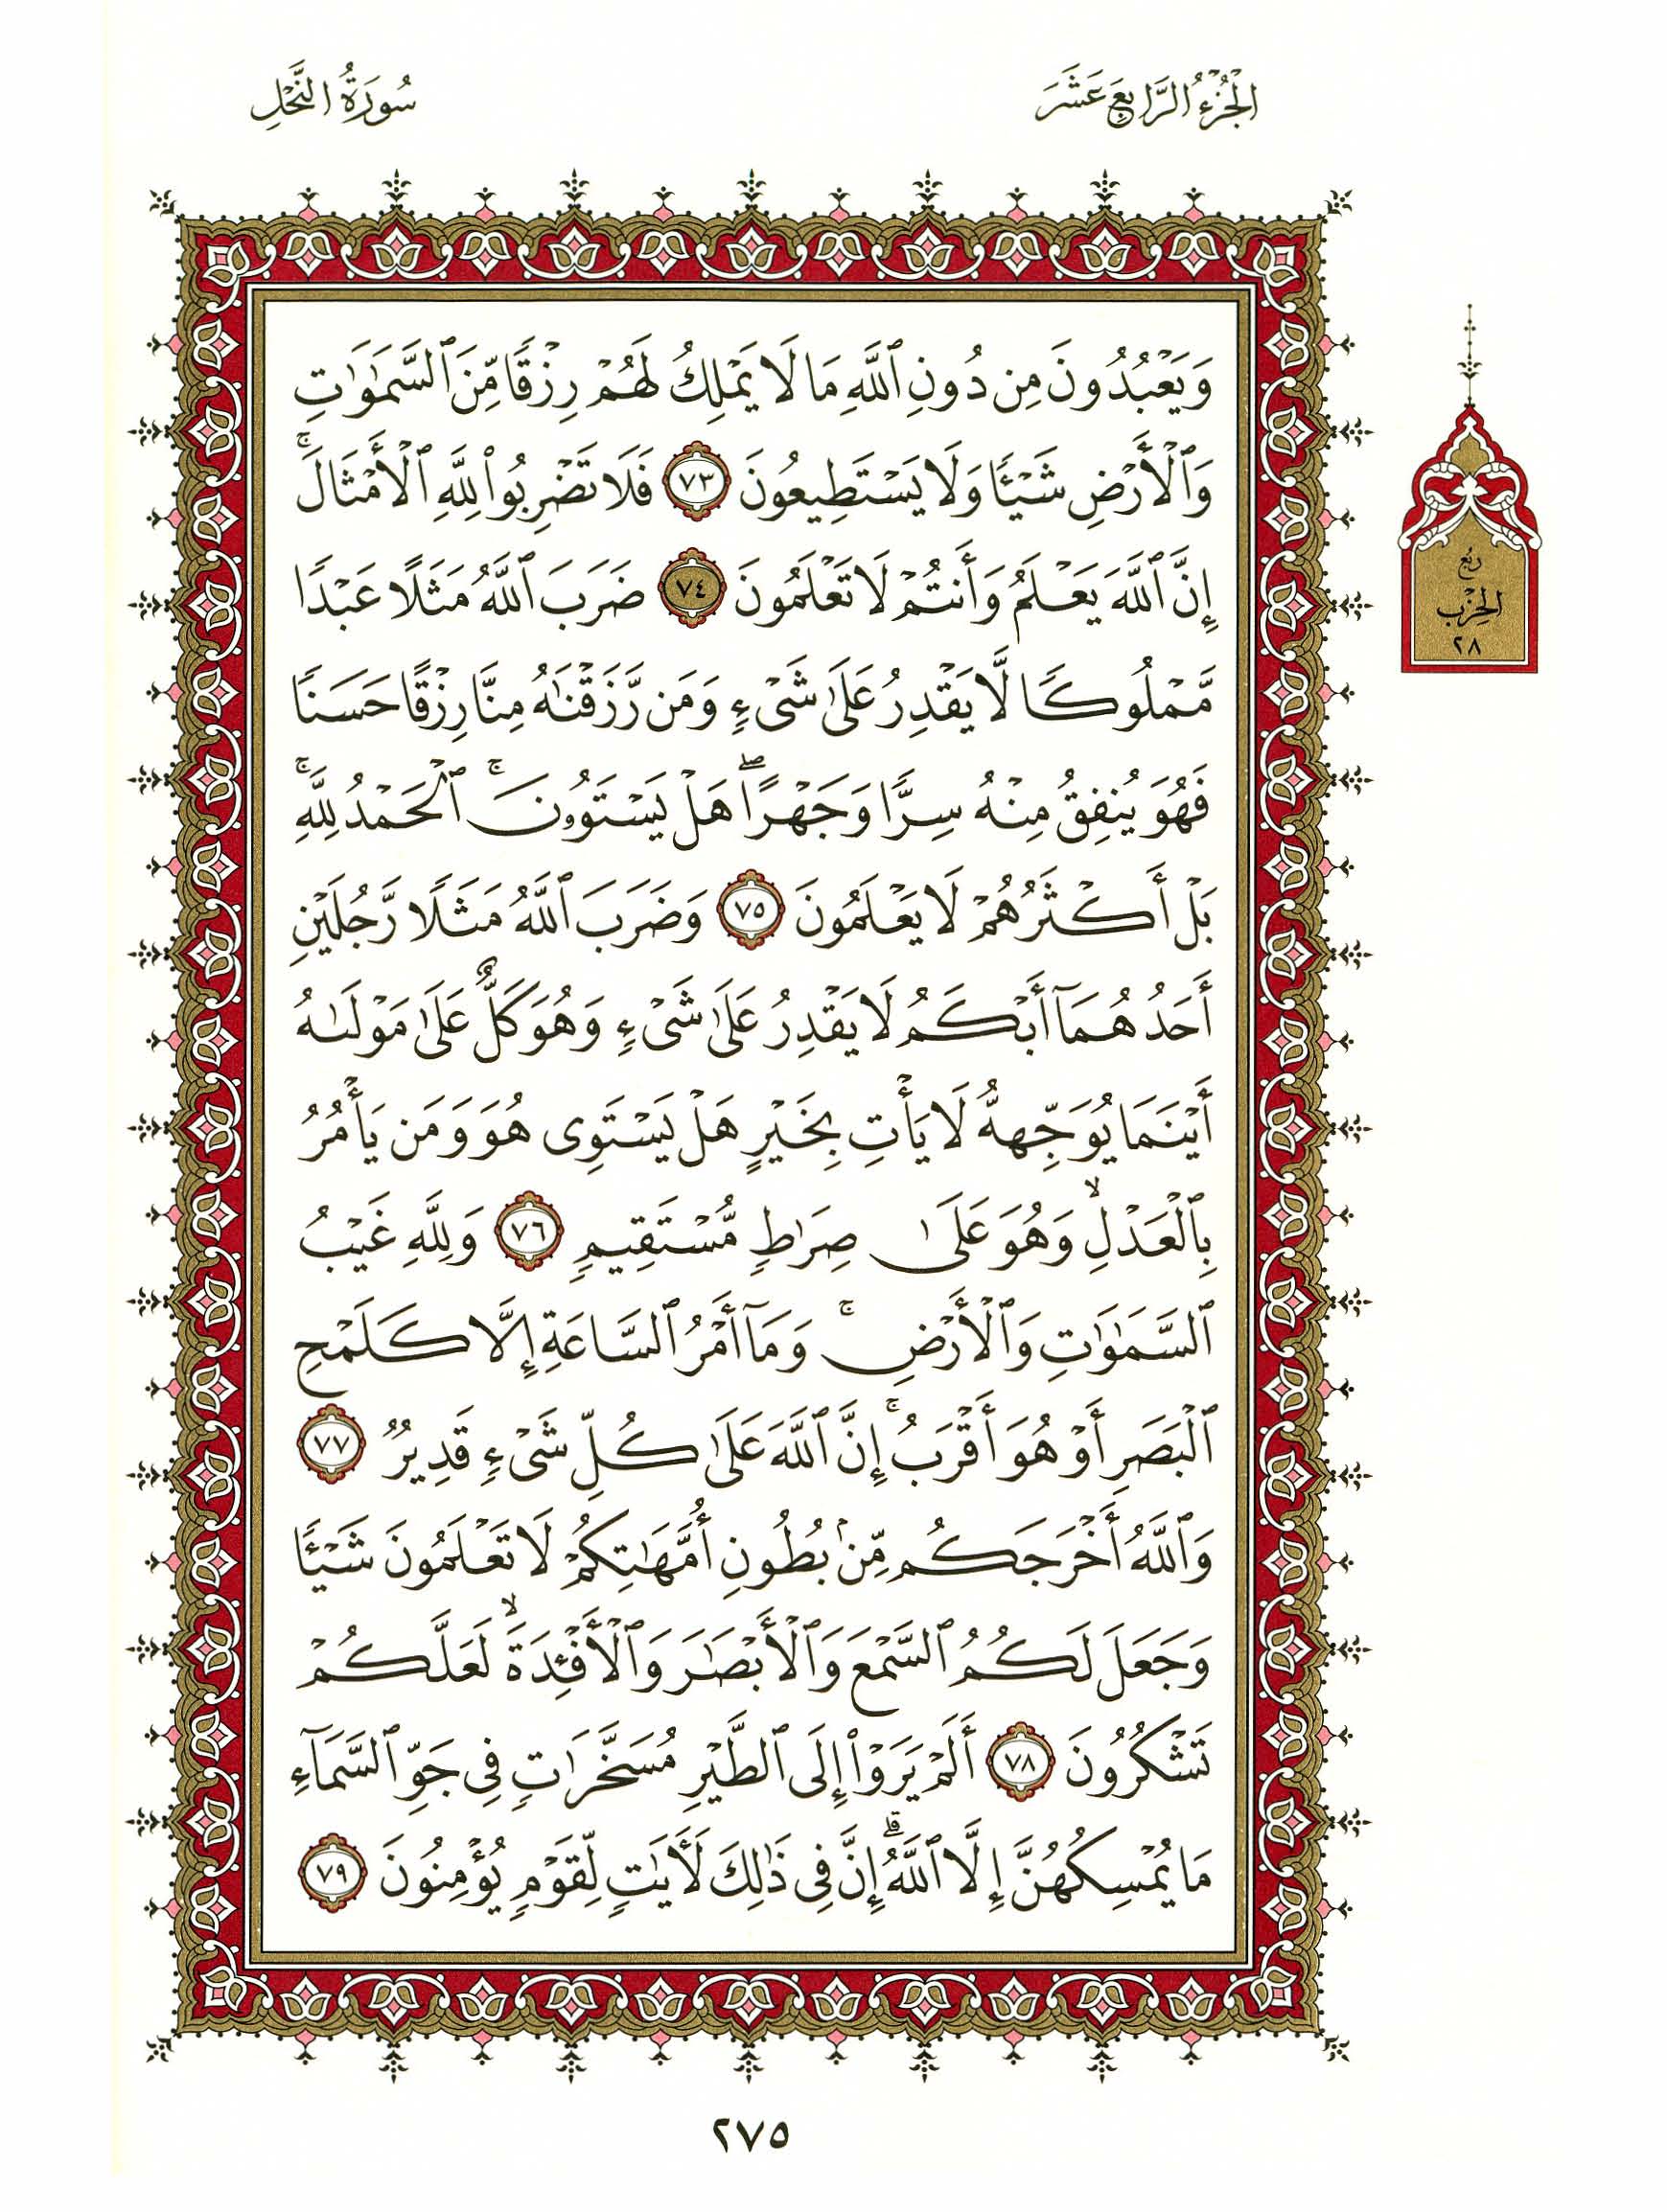 الجُزْءُ الرَّابِعَ عَشَرَ
سُورَةُ النَّحْلِ
وَيَعْبُدُونَ مِن دُونِ ٱللَّهِ مَا لَا يَمْلِكُ لَهُمْ رِزْقًا مِّنَ ٱلسَّمَٰوَٰتِ
وَٱلْأَرْضِ شَيْـًٔا وَلَا يَسْتَطِيعُونَ ٧٣ فَلَا تَضْرِبُوا۟ لِلَّهِ ٱلْأَمْثَالَ ۚ
إِنَّ ٱللَّهَ يَعْلَمُ وَأَنتُمْ لَا تَعْلَمُونَ ٧٤ ضَرَبَ ٱللَّهُ مَثَلًا عَبْدًا
مَّمْلُوكًا لَّا يَقْدِرُ عَلَىٰ شَىْءٍ وَمَن رَّزَقْنَٰهُ مِنَّا رِزْقًا حَسَنًا
فَهُوَ يُنفِقُ مِنْهُ سِرًّا وَجَهْرًا ۖ هَلْ يَسْتَوُۥنَ ۚ ٱلْحَمْدُ لِلَّهِ ۚ
بَلْ أَكْثَرُهُمْ لَا يَعْلَمُونَ ٧٥ وَضَرَبَ ٱللَّهُ مَثَلًا رَّجُلَيْنِ
أَحَدُهُمَآ أَبْكَمُ لَا يَقْدِرُ عَلَىٰ شَىْءٍ وَهُوَ كَلٌّ عَلَىٰ مَوْلَىٰهُ
أَيْنَمَا يُوَجِّههُّ لَا يَأْتِ بِخَيْرٍ هَلْ يَسْتَوِى هُوَ وَمَن يَأْمُرُ
بِٱلْعَدْلِ ۙ وَهُوَ عَلَىٰ صِرَٰطٍ مُّسْتَقِيمٍ ٧٦ وَلِلَّهِ غَيْبُ
ٱلسَّمَٰوَٰتِ وَٱلْأَرْضِ ۚ وَمَآ أَمْرُ ٱلسَّاعَةِ إِلَّا كَلَمْحِ
ٱلْبَصَرِ أَوْ هُوَ أَقْرَبُ ۚ إِنَّ ٱللَّهَ عَلَىٰ كُلِّ شَىْءٍ قَدِيرٌ ٧٧
وَٱللَّهُ أَخْرَجَكُم مِّنۢ بُطُونِ أُمَّهَٰتِكُمْ لَا تَعْلَمُونَ شَيْـًٔا
وَجَعَلَ لَكُمُ ٱلسَّمْعَ وَٱلْأَبْصَٰرَ وَٱلْأَفْـِٔدَةَ ۙ لَعَلَّكُمْ
تَشْكُرُونَ ٧٨ أَلَمْ يَرَوْا۟ إِلَى ٱلطَّيْرِ مُسَخَّرَٰتٍ فِى جَوِّ ٱلسَّمَآءِ
مَا يُمْسِكُهُنَّ إِلَّا ٱللَّهُ ۗ إِنَّ فِى ذَٰلِكَ لَـَٔايَٰتٍ لِّقَوْمٍ يُؤْمِنُونَ ٧٩
رُبُع
الحِزْب
٢٨
٢٧٥